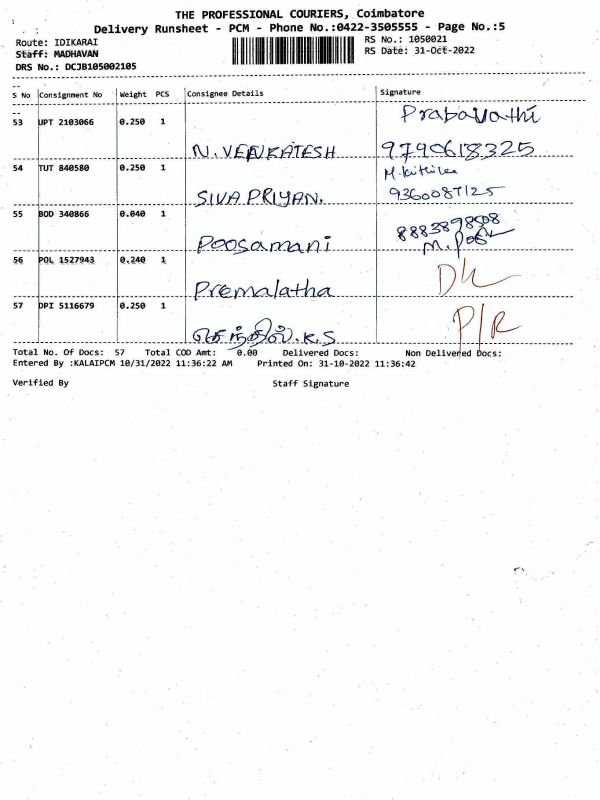 THE PROFESSIONAL COURIERS, Coimbatore
Delivery Runsheet - PCM - Phone No.:0422-3505555 - Page No.:5
Route: IDIKARAI
Staff: MADHAVAN
DRS No.: DCJB105002105
RS No.: 1050021
RS Date: 31-Oct-2022
S No Consignment No Weight PCS Consignee Details Signature
53 UPT 2103066 0.250 1 Prabavathi
N. VENKATESH 9790618325
54 TUT 840580 0.250 1
SIVA PRIYAN. 9360087125
55 BOD 340866 0.040 1 8883898508
Poosamani
56 POL 1527943 0.240 1 DL
Premalatha
57 DPI 5116679 0.250 1 P/R
செந்தில். K.S
Total No. Of Docs: 57 Total COD Amt: 0.00 Delivered Docs: Non Delivered Docs:
Entered By :KALAIPCM 10/31/2022 11:36:22 AM Printed On: 31-10-2022 11:36:42
Verified By Staff Signature